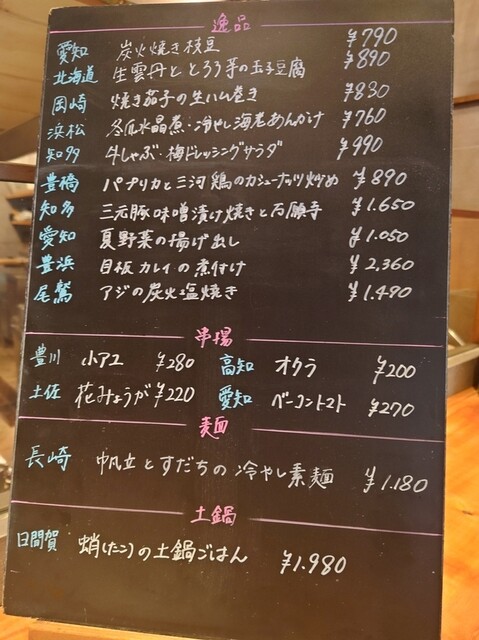 逸品
愛知 炭火焼き枝豆 ¥790
北海道 生雲丹ととろろ芋の玉子豆腐 ¥890
岡崎 焼き茄子の生ハム巻き ¥830
浜松 冬瓜水晶煮・冷やし海老あんかけ ¥760
知多 牛しゃぶ・梅ドレッシングサラダ ¥990
豊橋 パプリカと三河鶏のカシューナッツ炒め ¥890
知多 三元豚味噌漬け焼きと万願寺 ¥1.650
愛知 夏野菜の揚げ出し ¥1.050
豊浜 目板カレイの煮付け ¥2,360
尾鷲 アジの炭火塩焼き ¥1.490
串揚
豊川 小アユ ¥280 高知 オクラ ¥200
土佐 花みょうが ¥220 愛知 ベーコントマト ¥270
麺
長崎 帆立とすだちの冷やし素麺 ¥1.180
土鍋
日間賀 蛸(たこ)の土鍋ごはん ¥1.980